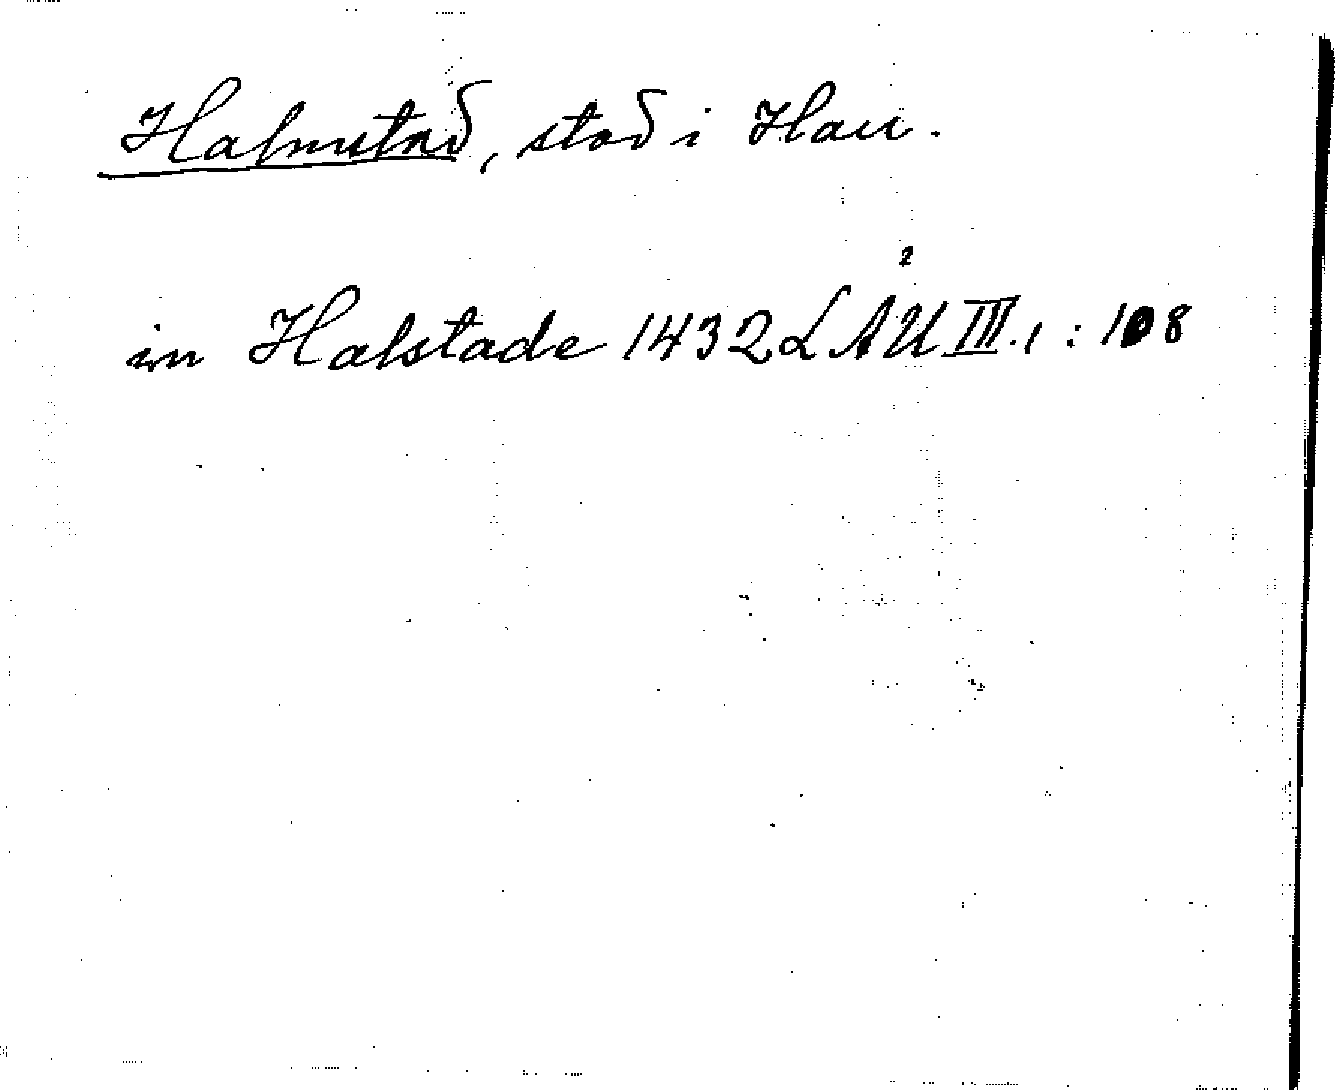 Halmstad, stad i Hall.
in Halstade 1432 LAU² III.1 : 108